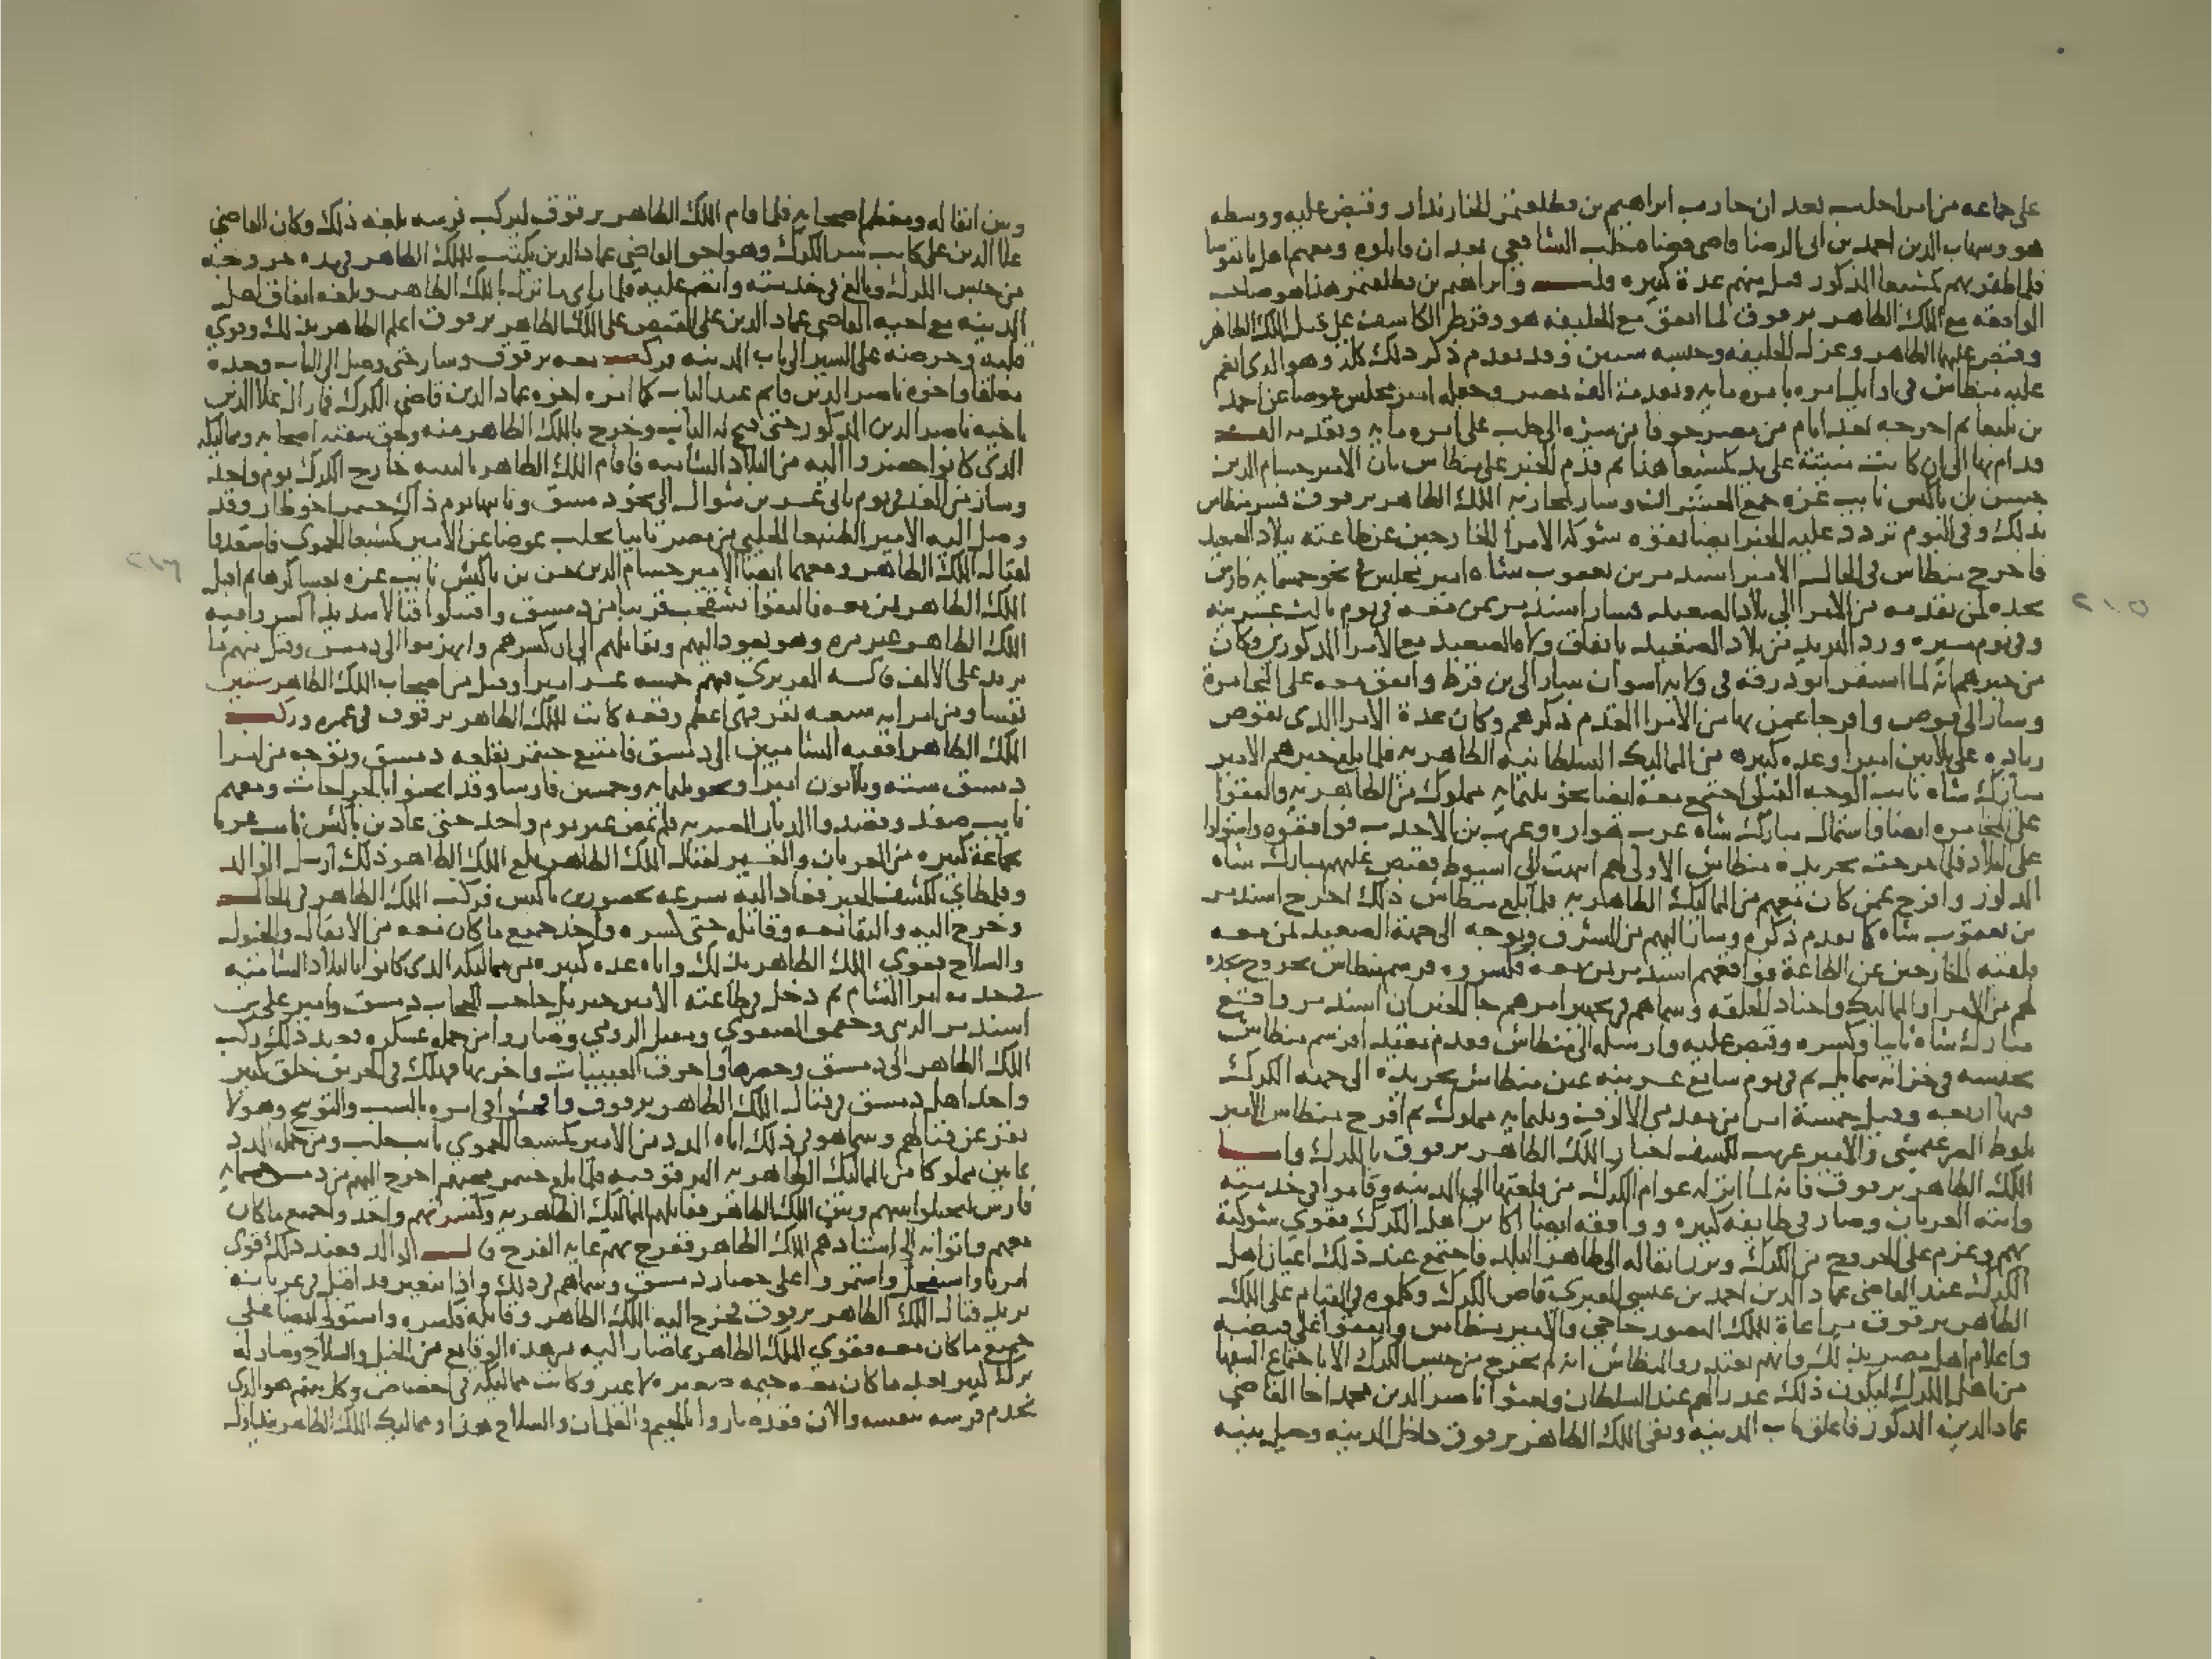 على جماعه من امرا حلب بعد ان حارب ابراهيم بن قطلقتمر الخازندار وقبض عليه ووسطه
هو وشهاب الدين احمد بن ابى الرضا قاضى قضاة حلب الشافعي بعد ان قاتلوه ومعهم اهل بانقوسا
فلما ظفر بهم كمشبغا المذكور قتل منهم عدة كبيره قلت وابراهيم بن قطلقتمر هذا هو صاحب
الواقعه مع الملك الظاهر برقوق لما اتفق مع الخليفه هو وقرط الكاشف على قتل الملك الظاهر
وقبض عليها الظاهر وعزل الخليفه وحبسه سنين وقد تقدم ذكر ذلك كله وهو الذى انعم
عليه منطاش فى اوايل امره بامره مايه وتقدمة الف بمصر وجعله امير مجلس عوضا عن احمد
بن يلبغا ثم اخرجه بعد ايام من مصر خوفا من شره الى حلب على امره مايه وتقدمه الف
فدام بها الى ان كانت منيته على يد كمشبغا هذا ثم قدم الخبر على منطاش بان الامير حسام الدين
حسين بن باكيش نايب غزه جمع العشران وسار لمحاربه الملك الظاهر برقوق فسر منطاش
بذلك وفى اليوم تردد عليه الخبر ايضا بقوه شوكة الامرا الخارجين عن طاعته ببلاد الصعيد
فاخرج منطاش فى الحال الامير اسندمر بن يعقوب شاه امير مجلس فى نحو خمسمايه فارس
نجده لمن تقدمه من الامرا الى بلاد الصعيد فسار اسندمر بمن معه فى يوم ثالث عشرينه
وفى يوم مسيره ورد البريد من بلاد الصعيد باتفاق ولاه الصعيد مع الامرا المذكورين وكان
من خبرهم انه لما استقر ابو درقه فى ولايه اسوان سار الى بن قرط واتفق معه على المخامرة
وسار الى قوص وافرجا عمن بها من الامرا المقدم ذكرهم وكان عدة الامرا الذى بقوص
زياده على ثلاثين اميرا وعده كبيره من المماليك السلطانيه الظاهريه فلما بلغ خبرهم الامير
مبارك شاه نايب الوجه القبلى اجتمع معه ايضا نحو ثلثمايه مملوك من الظاهريه واتفقوا
على المخامره ايضا واستمال مبارك شاه عرب هواره وعرب بن الاحدب فوافقوه واستولوا
على البلاد فلما خرجت تجريده منطاش الاولى لهم انتهت الى اسيوط فقبض عليهم مبارك شاه
المذكور وافرج عمن كان معهم من المماليك الظاهريه فلما بلغ منطاش ذلك اخرج اسندمر
بن يعقوب شاه كما تقدم ذكره وسار اليهم من الشرق وتوجه الى جهة الصعيد بمن معه
فلقيه الخارجين عن الطاعة فواقعهم اسندمر بمن معه فكسروه فرسم منطاش بخروج نجده
لهم من الامرا والمماليك واجناد الحلقه وبينما هم فى تجهيز امرهم جا الخبر ان اسندمر واقع
مبارك شاه ثانيا وكسره وقبض عليه وارسله الى منطاش فقدم مقيدا فرسم منطاش
بحبسه فى خزانة شمايل ثم فى يوم سابع عشرينه عين منطاش تجريده الى جهه الكرك
فيها اربعه وقيل خمسة امرا من مقدمى الالوف وثلثمايه مملوك ثم اخرج منطاش الامير
بلوط الصرغتمشى والامير غريب لكشف اخبار الملك الظاهر برقوق بالكرك واما
الملك الظاهر برقوق فانه لما انزله عوام الكرك من قلعتها الى المدينه وقاموا فى خدمته
واتته العربان وصار فى طايفه كبيره ووافقه ايضا اكابر اهل الكرك فقوي شوكته
بهم وعزم على الخروج من الكرك وبرز اثقاله الى ظاهر البلد فاجتمع عند ذلك اعيان اهل
الكرك عند القاضى عماد الدين احمد بن عيسى المقيرى قاضى الكرك وكلموه فى القيام على الملك
الظاهر برقوق مراعاة للملك المنصور حاجي والامير منطاش واتفقوا على قبضه
واعلام اهل مصر بذلك وانهم يعتذروا لمنطاش انه لم يخرج من حبس الكرك الا باجتماع السفها
من اهل الكرك ليكون ذلك عذر لهم عند السلطان وبعثوا ناصر الدين محمد اخا القاضي
عماد الدين المذكور فاغلق باب المدينه وبقى الملك الظاهر برقوق داخل المدينه وحيل بينه
وبين اثقاله ومعظم اصحابه فلما قام الملك الظاهر برقوق ليركب فرسه بلغه ذلك وكان القاضي
علا الدين على كاتب سر الكرك وهو اخو القاضي عماد الدين يكتب للملك الظاهر فى مده خروجه
من حبس الكرك وبالغ فى خدمته وانضم عليه فلما راى ما نزل بالملك الظاهر وبلغه اتفاق اهل
المدينه مع اخيه القاضي عماد الدين على القبض على الملك الظاهر برقوق اعلم الظاهر بذلك وقوي
قلبه وحرضه على السير الى باب المدينه فركب معه برقوق وسار حتى وصل الى الباب وجده
مغلقا واخوه ناصر الدين قايم عند الباب كما امره اخوه عماد الدين قاضي الكرك فما زال علا الدين
باخيه ناصر الدين المذكور حتى فتح له الباب وخرج بالملك الظاهر منه ولحق ببقيه اصحابه ومماليكه
الذى كانوا حضروا اليه من البلاد الشاميه فاقام الملك الظاهر بالثنيه خارج الكرك يوم واحد
وسار من الغد فى يوم ثانى عشرين شوال الى نحو دمشق ونايبها يوم ذاك جنتمر اخو طاز وقد
وصل اليه الامير الطنبغا الحلبي من مصر نايبا بحلب عوضا عن الامير كمشبغا الحموى فاستعدا
لقتال الملك الظاهر ومعهما ايضا الامير حسام الدين حسين بن باكيش نايب غزه بعساكرها ثم اقبل
الملك الظاهر بمن معه فالتقوا بشقحب قريبا من دمشق واقتتلوا قتالا شديدا كسر فيه
الملك الظاهر غير مره وهو يعود اليهم ويقاتلهم الى ان كسرهم وانهزموا الى دمشق وقتل منهم ما
يزيد على الالف فى كسه المريرى فيهم خمسه عشر اميرا وقتل من اصحاب الملك الظاهر ستين
نفسا ومن امرايه سبعه نفر فهى اعظم وقعه كانت للملك الظاهر برقوق فى عمره وركب
الملك الظاهر اقفيه الشاميين الى دمشق فامتنع جنتمر بقلعه دمشق وتوجه من امرا
دمشق سته وثلاثون اميرا ونحو ثلثمايه وخمسين فارسا وقد اثخنوا بالجراحات ومعهم
نايب صفد وقصدوا الديار المصريه فلم يمض غير يوم واحد حتى عاد بن باكيش نايب غزه
بجماعة كبيره من العربان والعشير لقتال الملك الظاهر وبلغ الملك الظاهر ذلك ارسل الوالد
وقلمطاي لكشف الخبر فعاد اليه بسرعه بحضور بن باكيش فركب الملك الظاهر فى الحال
وخرج اليه والتقا معه وقاتله حتى كسره واخذ جميع ما كان معه من الاثقال والخيول
والسلاح فقوي الملك الظاهر بذلك واتاه عده كبيره من مماليكه الذى كانوا بالبلاد الشاميه
فى خدمه امرا الشام ثم دخل فى طاعته الامير جبريل حاجب الحجاب بدمشق وامير على بن
اسندمر الزينى وجقمق الصفوي ومقبل الرومي وصاروا من جمله عسكره فعند ذلك ركب
الملك الظاهر الى دمشق وحصرها واحرق القبيبات واخربها فهلك فى الحريق خلق كبير
واخذ اهل دمشق فى قتال الملك الظاهر برقوق وافحشوا فى امره بالسب والتوبيخ وهو لا
يفتر عن قتالهم وبينما هو فى ذلك اتاه المدد من الامير كمشبغا الحموي نايب حلب ومن جمله المدد
ثمانين مملوكا من المماليك الظاهريه البرقوقيه فلما بلغ جنتمر مجيهم اخرج اليهم من دمشق خمسمايه
فارس ليحيلوا بينهم وبين الملك الظاهر فقاتلهم المماليك الظاهريه وكسرتهم واخذوا جميع ما كان
معهم واتوا به الى استاذهم الملك الظاهر ففرح بهم غايه الفرح قال الوالد فعند ذلك قوى
امرنا واستفحل واستمروا على حصار دمشق وبينما هم فى ذلك واذا بنعير قد اقبل فى عربانه
يريد قتال الملك الظاهر برقوق فخرج اليه الملك الظاهر وقاتله فكسره واستولى ايضا على
جميع ما كان معه فقوي الملك الظاهر بما صار اليه من هذه الوقايع من الخيل والسلاح وصار له
برك كبير بعد ما كان معه خيمه صغيره لا غير وكانت مماليكه فى اخصاص وكل منهم هو الذى
يخدم فرسه بنفسه والان فقد صاروا بالخيم والغلمان والسلاح هذا ومماليك الملك الظاهر يتداول